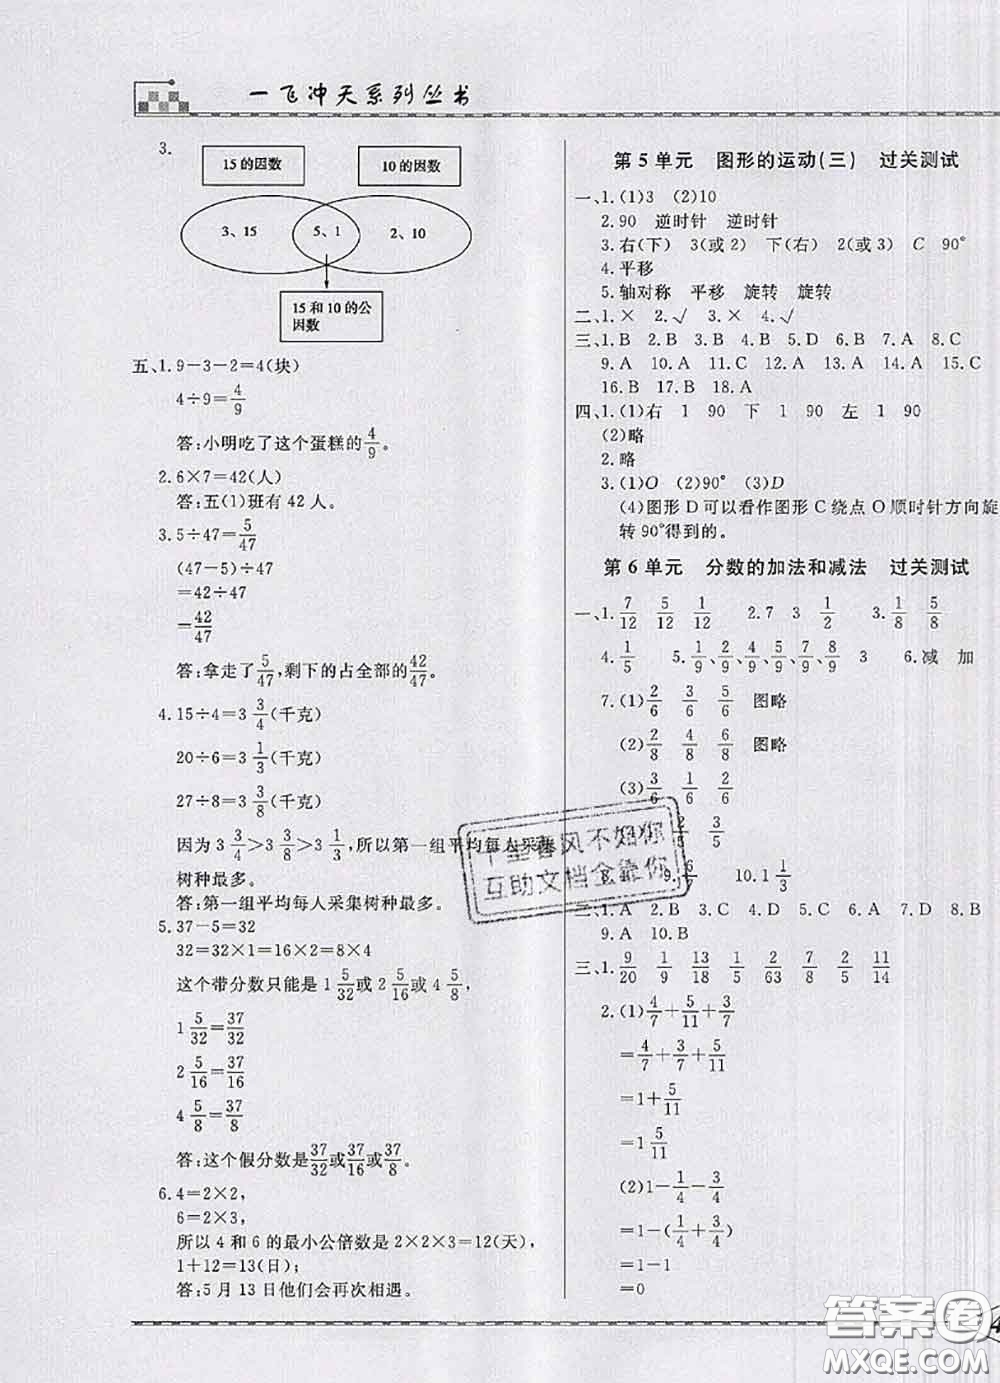 一飞冲天系列丛书
3.
15 的因数 10 的因数
3、15 5、1 2、10
15 和 10 的公
因数
五、1. 9－3－2=4(块)
4÷9=4/9
答:小明吃了这个蛋糕的4/9。
2. 6×7=42(人)
答:五(1)班有 42 人。
3. 5÷47=5/47
(47－5)÷47
=42÷47
=42/47
答:拿走了5/47,剩下的占全部的42/47。
4. 15÷4=3 3/4(千克)
20÷6=3 1/3(千克)
27÷8=3 3/8(千克)
因为 3 3/4>3 3/8>3 1/3,所以第一组平均每人采集
树种最多。
答:第一组平均每人采集树种最多。
5. 37－5=32
32=32×1=16×2=8×4
这个带分数只能是 1 5/32或 2 5/16或 4 5/8,
1 5/32=37/32
2 5/16=37/16
4 5/8=37/8
答:这个假分数是37/32或37/16或37/8。
6. 4=2×2,
6=2×3,
所以 4 和 6 的最小公倍数是 2×2×3=12(天),
1+12=13(日);
答:5 月 13 日他们会再次相遇。
第 5 单元 图形的运动(三) 过关测试
一、1. (1)3 (2)10
2. 90 逆时针 逆时针
3. 右(下) 3(或 2) 下(右) 2(或 3) C 90°
4. 平移
5. 轴对称 平移 旋转 旋转
二、1. × 2. √ 3. × 4. √
三、1. B 2. B 3. B 4. B 5. D 6. B 7. A 8. C
9. A 10. A 11. C 12. C 13. A 14. A 15. C
16. B 17. B 18. A
四、1. (1)右 1 90 下 1 90 左 1 90
(2)略
2. 略
3. (1)O (2)90° (3)D
(4)图形 D 可以看作图形 C 绕点 O 顺时针方向旋
转 90°得到的。
第 6 单元 分数的加法和减法 过关测试
一、1. 7/12 5/12 1/12 2. 7 3 1/2 3. 1/8 5/8
4. 1/5 5. 1/9、2/9、4/9、5/9、7/9、8/9 3 6. 减 加
7. (1)2/6 3/6 5/6 图略
(2)2/8 4/8 6/8 图略
(3)3/6 1/6 2/6
2/5 3/5
8. 9. 10. 1 1/3
二、1. A 2. B 3. C 4. D 5. C 6. A 7. D 8. B
9. A 10. B
三、1. 9/20 1/9 13/18 1/5 2/63 7/8 2/5 11/14
2. (1)4/7+5/11+3/7
=4/7+3/7+5/11
=1+5/11
=1 5/11
(2)1－1/4－3/4
=1－(1/4+3/4)
=1－1
=0
千里春风不如你
互助文档全靠你
答案卷
MXQE.COM
4